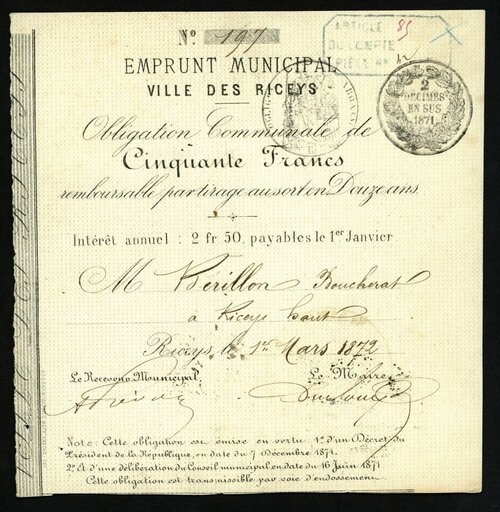 No 197
ARTICLE 85
DU COMPTE
PIÈCE No
EMPRUNT MUNICIPAL
VILLE DES RICEYS
2
DECIMES
EN SUS
1871
Obligation Communale de
Cinquante Francs
remboursable par tirage au sort en Douze ans.
Intérêt annuel : 2 fr 50, payables le 1er Janvier.
M Bérillon Boucherat
à Riceys haut
Riceys, le 1er Mars 1872
Le Receveur Municipal Le Maire
Nota : Cette obligation est émise en vertu : 1o d'un Décret du
Président de la République, en date du 7 Décembre 1871.
2o Et d'une délibération du Conseil municipal en date du 16 Juin 1871
Cette obligation est transmissible par voie d'endossement.